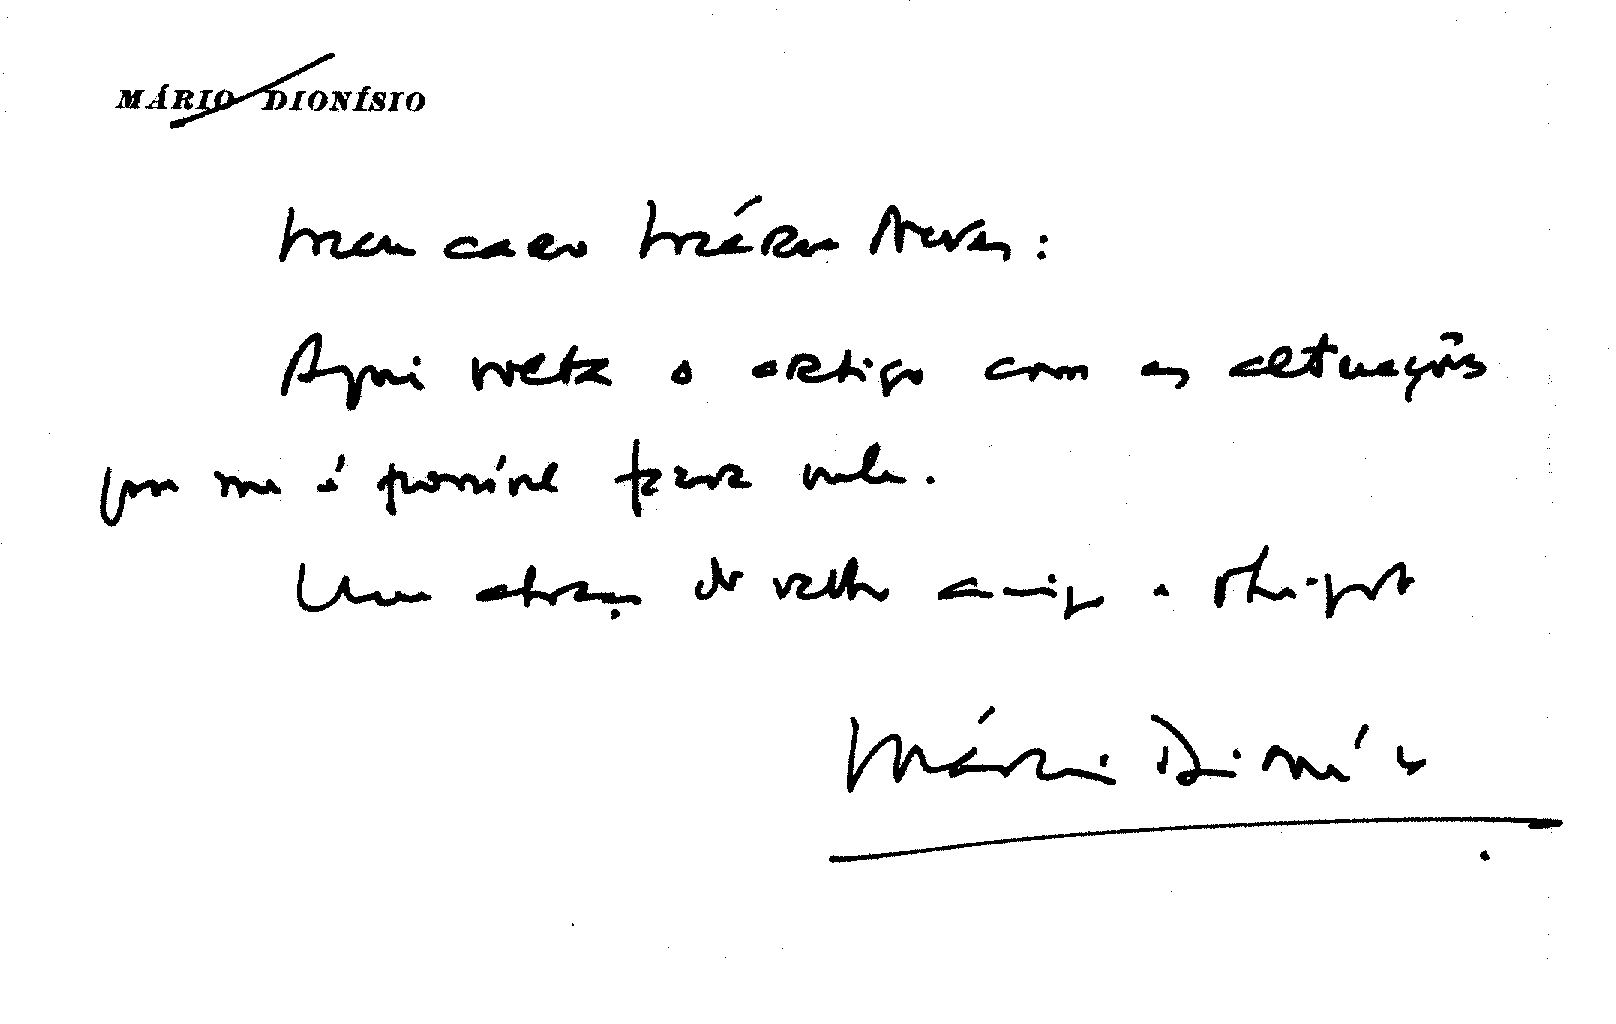 MÁRIO DIONÍSIO
Meu caro Mário Neves:
Aqui volta o artigo com as alterações
que me é possível fazer nele.
Um abraço do velho amigo e obrigado
Mário Dionísio